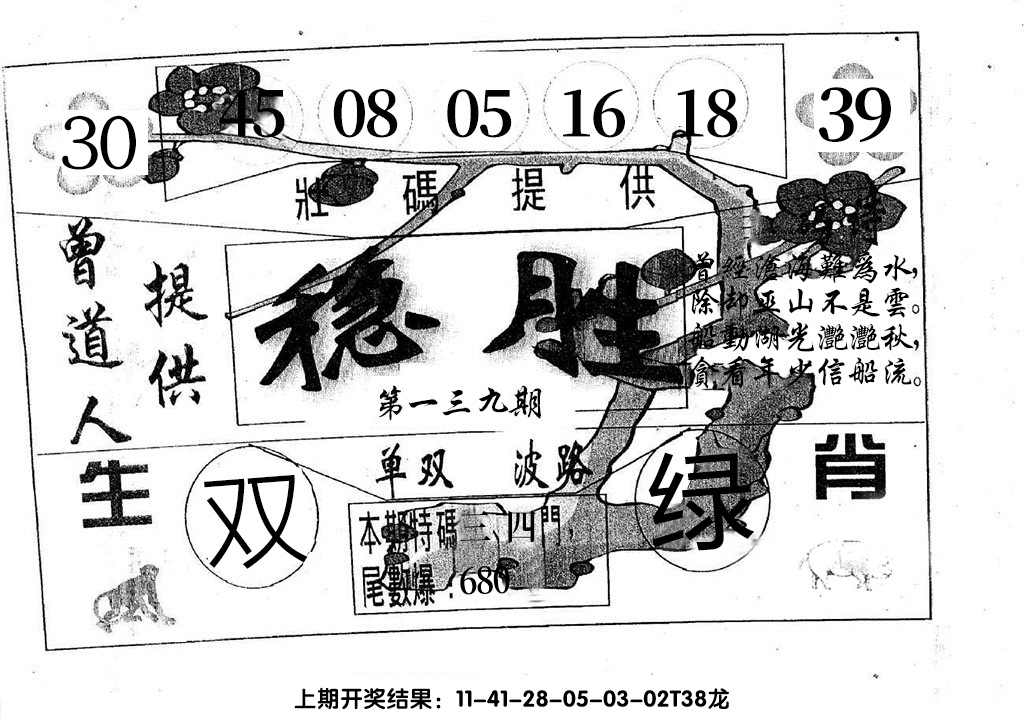 30 45 08 05 16 18 39
壯碼提供
特
曾道人
提供
穩胜
第一三九期
曾經滄海難為水，
除却巫山不是雲。
船動湖光灧灧秋，
貪看年少信船流。
单双 波路
生肖
双
绿
本期特碼三、四門，
尾數爆：680
上期开奖结果：11-41-28-05-03-02T38龙